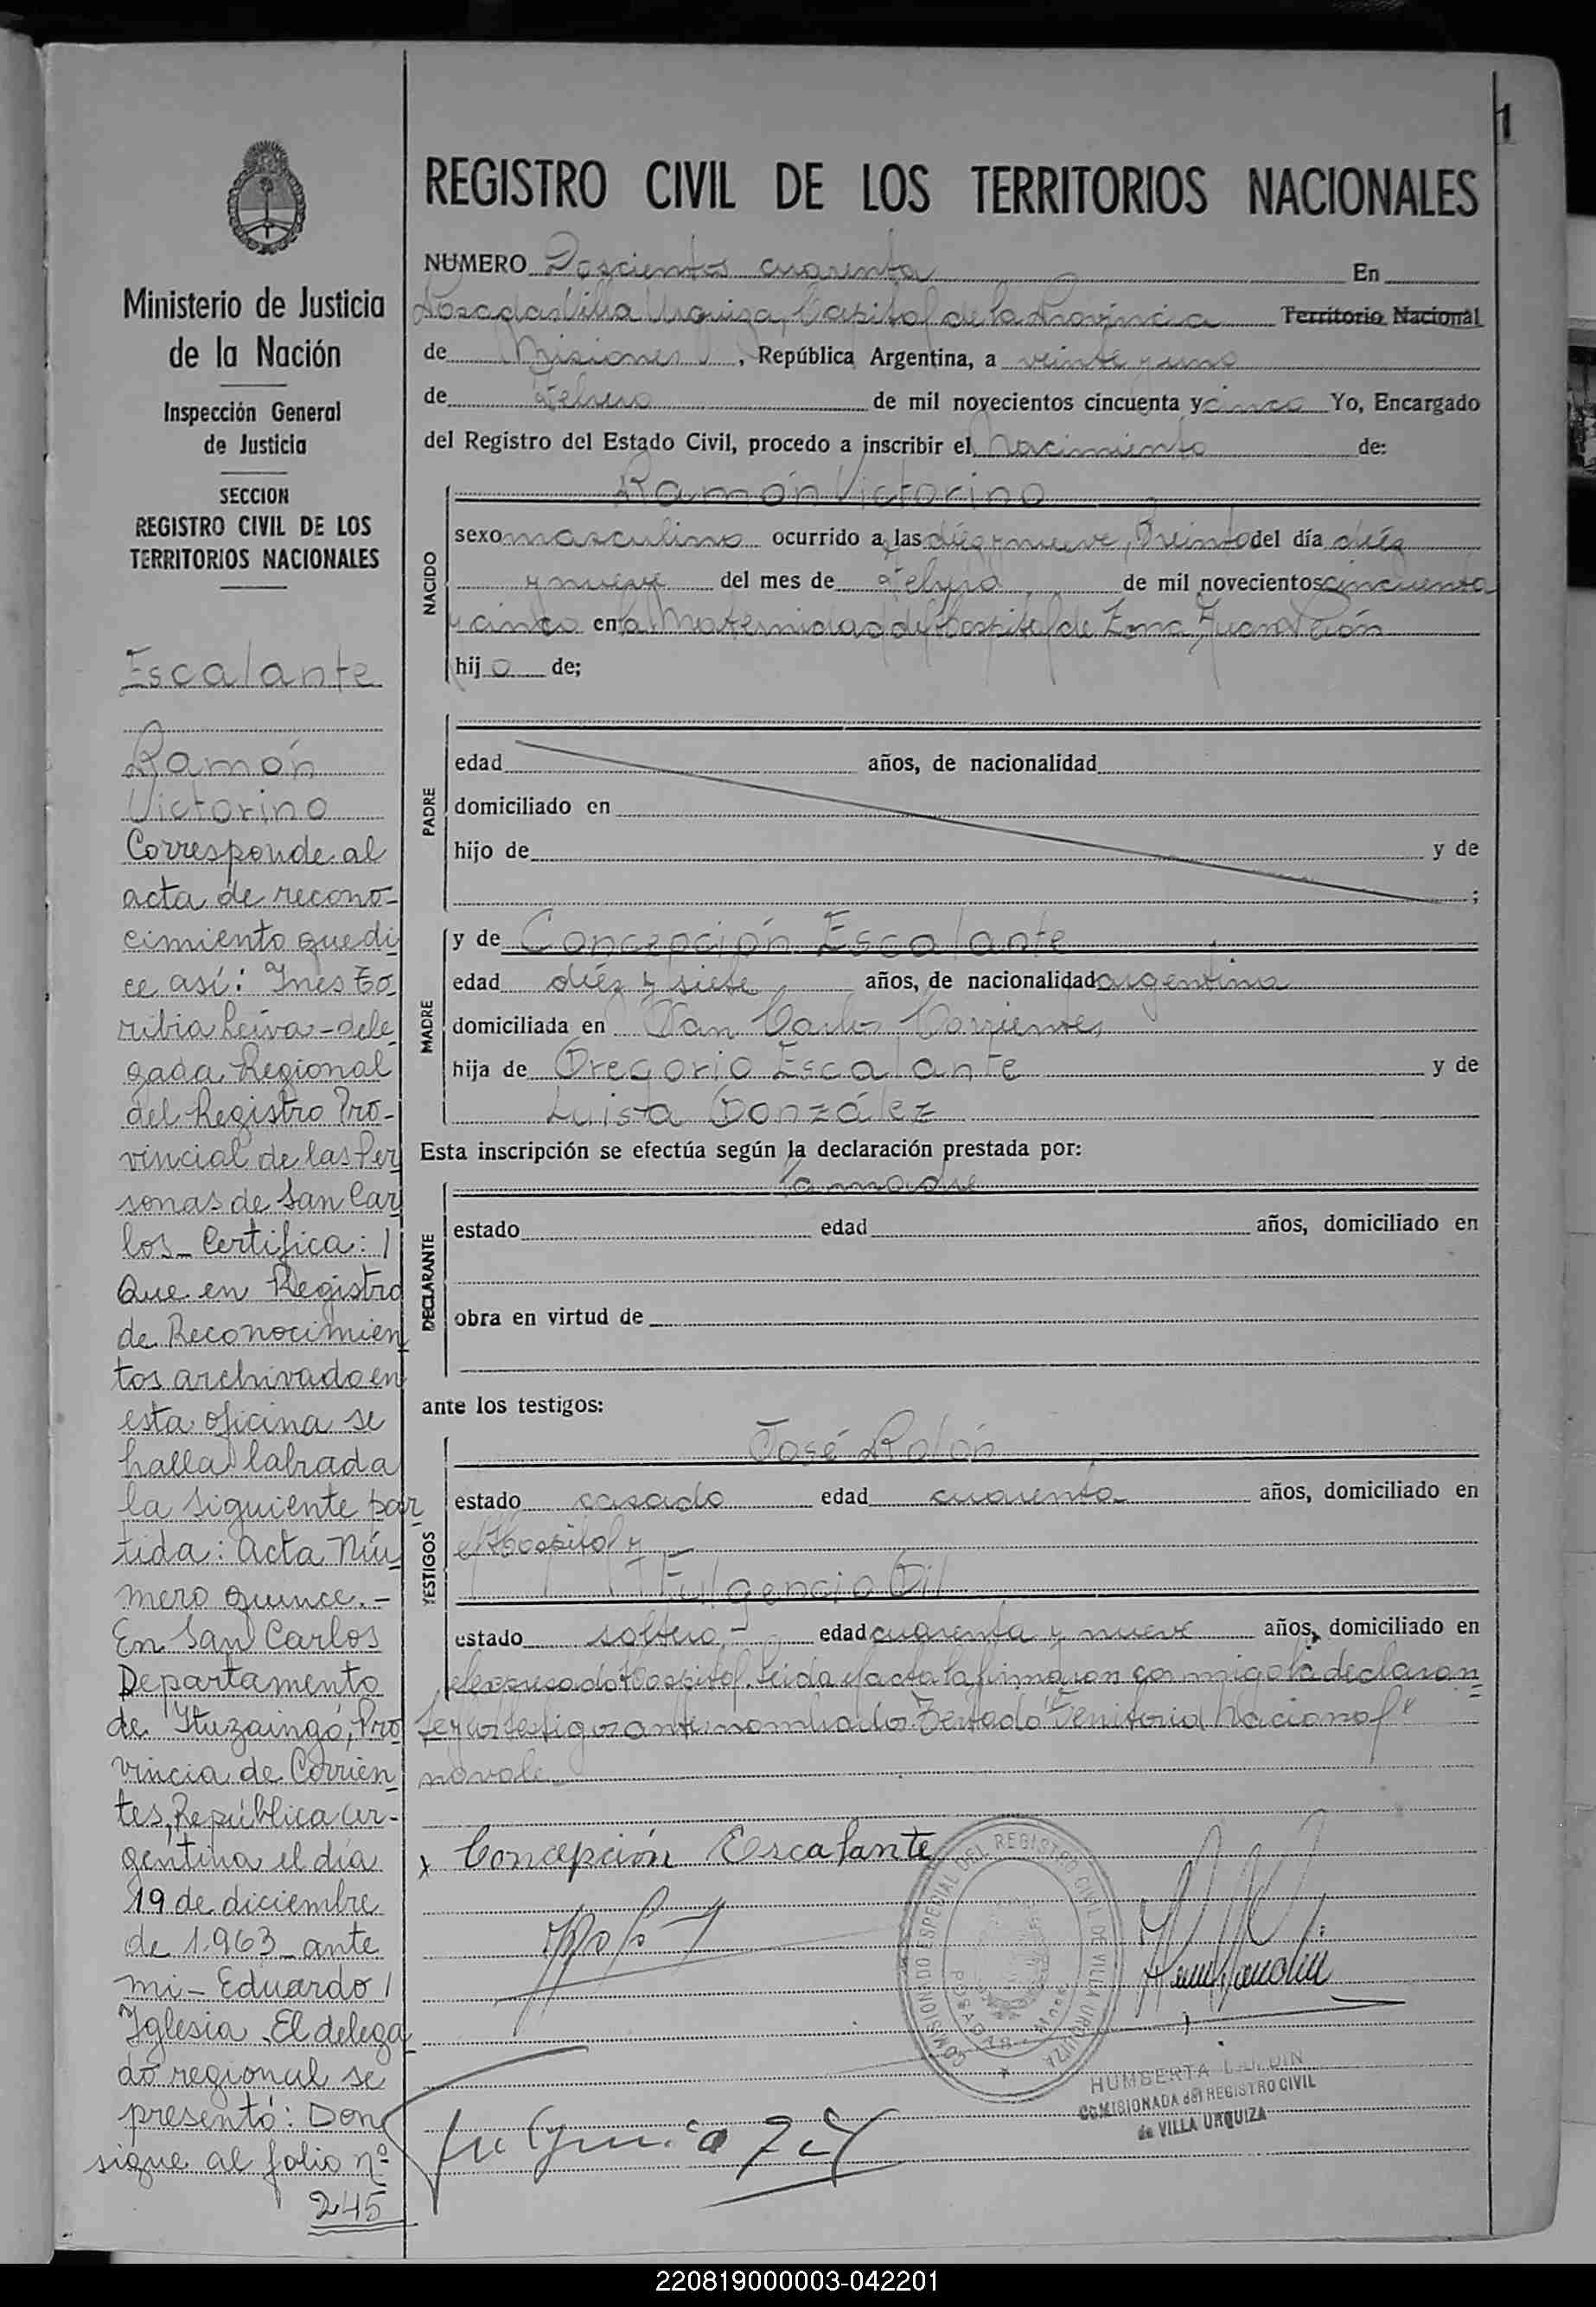 1
REGISTRO CIVIL DE LOS TERRITORIOS NACIONALES
NUMERO Doscientos cuarenta En
Posadas Villa Urquiza, Capital de la Provincia Territorio Nacional
de Misiones, República Argentina, a veinte y uno
de Febrero de mil novecientos cincuenta y cinco Yo, Encargado
del Registro del Estado Civil, procedo a inscribir el Nacimiento de:
NACIDO
Ramón Victorino
sexo masculino ocurrido a las diéz y nueve, treinta del día diéz
y nueve del mes de Febrero de mil novecientos cincuenta
y cinco en la Maternidad del Hospital de Zona, Juan Perón
hijo de;
PADRE
edad años, de nacionalidad
domiciliado en
hijo de y de
;
MADRE
y de Concepción Escalante
edad diéz y siete años, de nacionalidad argentina
domiciliada en San Carlos Corrientes
hija de Gregorio Escalante y de
Luisa González
Esta inscripción se efectúa según la declaración prestada por:
DECLARANTE
la madre
estado edad años, domiciliado en
obra en virtud de
ante los testigos:
TESTIGOS
José Rolón
estado casado edad cuarenta años, domiciliado en
el Hospital y
Fulgencio Gil
estado soltero - edad cuarenta y nueve años, domiciliado en
el expresado Hospital. Leida el acta la firmaron conmigo la declaran=
te y los testigos ante nombrados. Testado "Territorio Nacional"
no vale
x Concepción Escalante
COMISIONADO ESPECIAL DEL REGISTRO CIVIL DE VILLA URQUIZA
POSADAS
HUMBERTA
COMISIONADA del REGISTRO CIVIL
de VILLA URQUIZA
Fulgencio Gil
Ministerio de Justicia
de la Nación
Inspección General
de Justicia
SECCION
REGISTRO CIVIL DE LOS
TERRITORIOS NACIONALES
Escalante
Ramón
Victorino
Corresponde al
acta de recono-
cimiento que di
ce así: Ines To
ribia Leiva - dele
gada Regional
del Registro Pro-
vincial de las Per
sonas de San Car
los - Certifica: /
Que en Registro
de Reconocimien
tos archivado en
esta oficina se
halla labrada
la siguiente par
tida: Acta Nú
mero quince. -
En San Carlos
Departamento
de Ituzaingó, Pro
vincia de Corrien
tes, República Ar-
gentina el día
19 de diciembre
de 1.963 - ante
mi - Eduardo /
Iglesia. El delega
do regional se
presentó: Don
sigue al folio nº
245
220819000003-042201